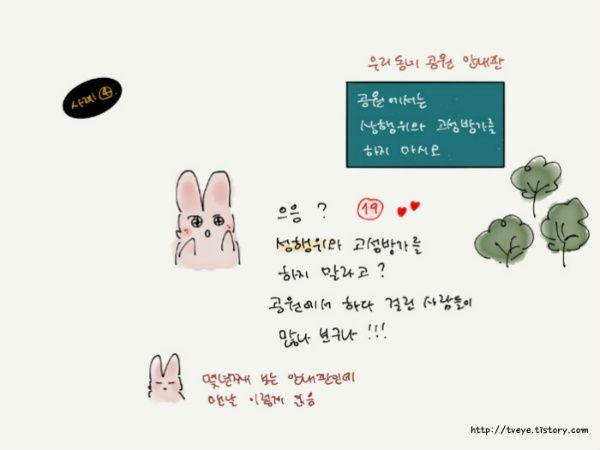 우리동네 공원 안내판
사례 ④.
공원에서는
상행위와 고성방가를
하지 마시오
으음 ?
19
성행위와 고성방가를
하지 말라고 ?
공원에서 하다 걸린 사람들이
많나 보구나 !!!
몇년째 보는 안내판인데
맨날 이렇게 읽음
http://tveye.tistory.com